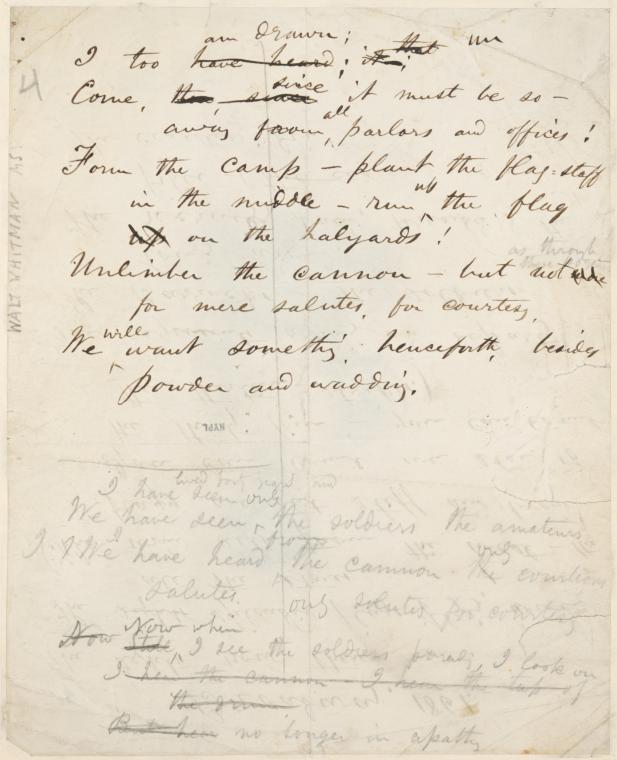 am drawn;
I too have heard; it that;
4
Come, since it must be so —
away from all parlors and offices!
Form the camp — plant the flag-staff
in the middle — run up the flag
up on the halyards!
Unlimber the cannon — but not
as through
for mere salutes, for courtesy,
We will want somethi'g, henceforth, besides
powder and waddin'g.
WALT WHITMAN MS.
NYPL
I have seen only
We have seen, the soldiers the amateurs
I We have heard the cannon the courteous
salutes. only salutes for courtesy
Now when
Now I see the soldiers parade, I look on
I hear the cannon — I hear the tap of
the drum
But hear no longer in apathy